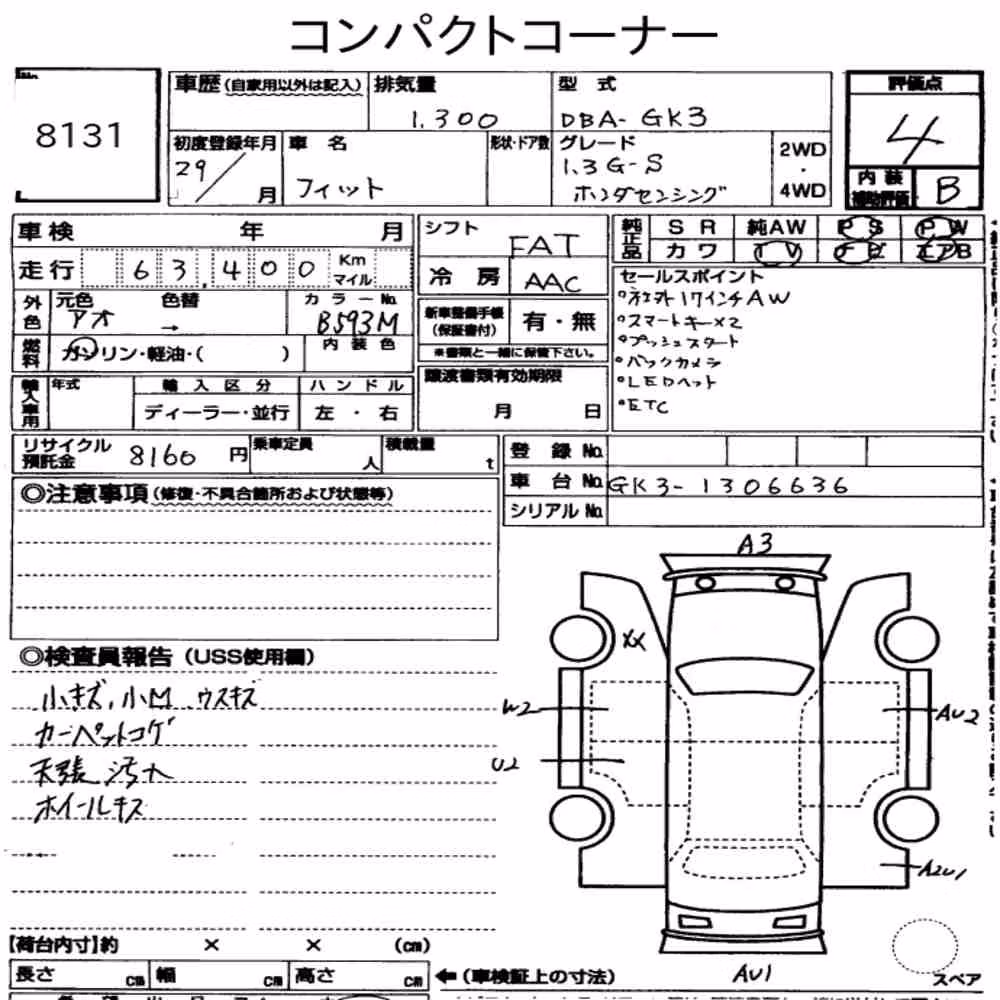 コンパクトコーナー
8131
車歴 (自家用以外は記入)
排気量
1,300
型 式
DBA- GK3
評価点
4
初度登録年月
29/ 月
車 名
フィット
形状・ドア数
グレード
1.3 G-S
ホンダセンシング
2WD
・
4WD
内装
補助評価
B
車検 年 月
走行 63,400 Km マイル
シフト
FAT
冷房
AAC
純正品
S R 純AW P S P W
カワ T V ナビ エアB
外色
元色 色替 カラーNo.
アオ → B593M
燃料
ガソリン・軽油・( )
内装色
新車整備手帳
(保証書付)
有・無
※書類と一緒に保管下さい。
セールスポイント
°社外17インチAW
°スマートキー×2
°プッシュスタート
°バックカメラ
°LEDヘット
°ETC
輸入車用
年式 輸入区分 ハンドル
ディーラー・並行 左・右
譲渡書類有効期限
月 日
リサイクル
預託金
8160 円
乗車定員
人
積載量
t
登 録 No.
車 台 No.
GK3-1306636
シリアル No.
◎注意事項 (修復・不具合箇所および状態等)
◎検査員報告 (USS使用欄)
小キズ、小M ウスキズ
カーペットコゲ
天張 汚れ
ホイールキズ
A3
XX
W2
AU2
U2
A2U1
AU1
スペア
【荷台内寸】約 × × (cm)
長さ cm 幅 cm 高さ cm
←(車検証上の寸法)